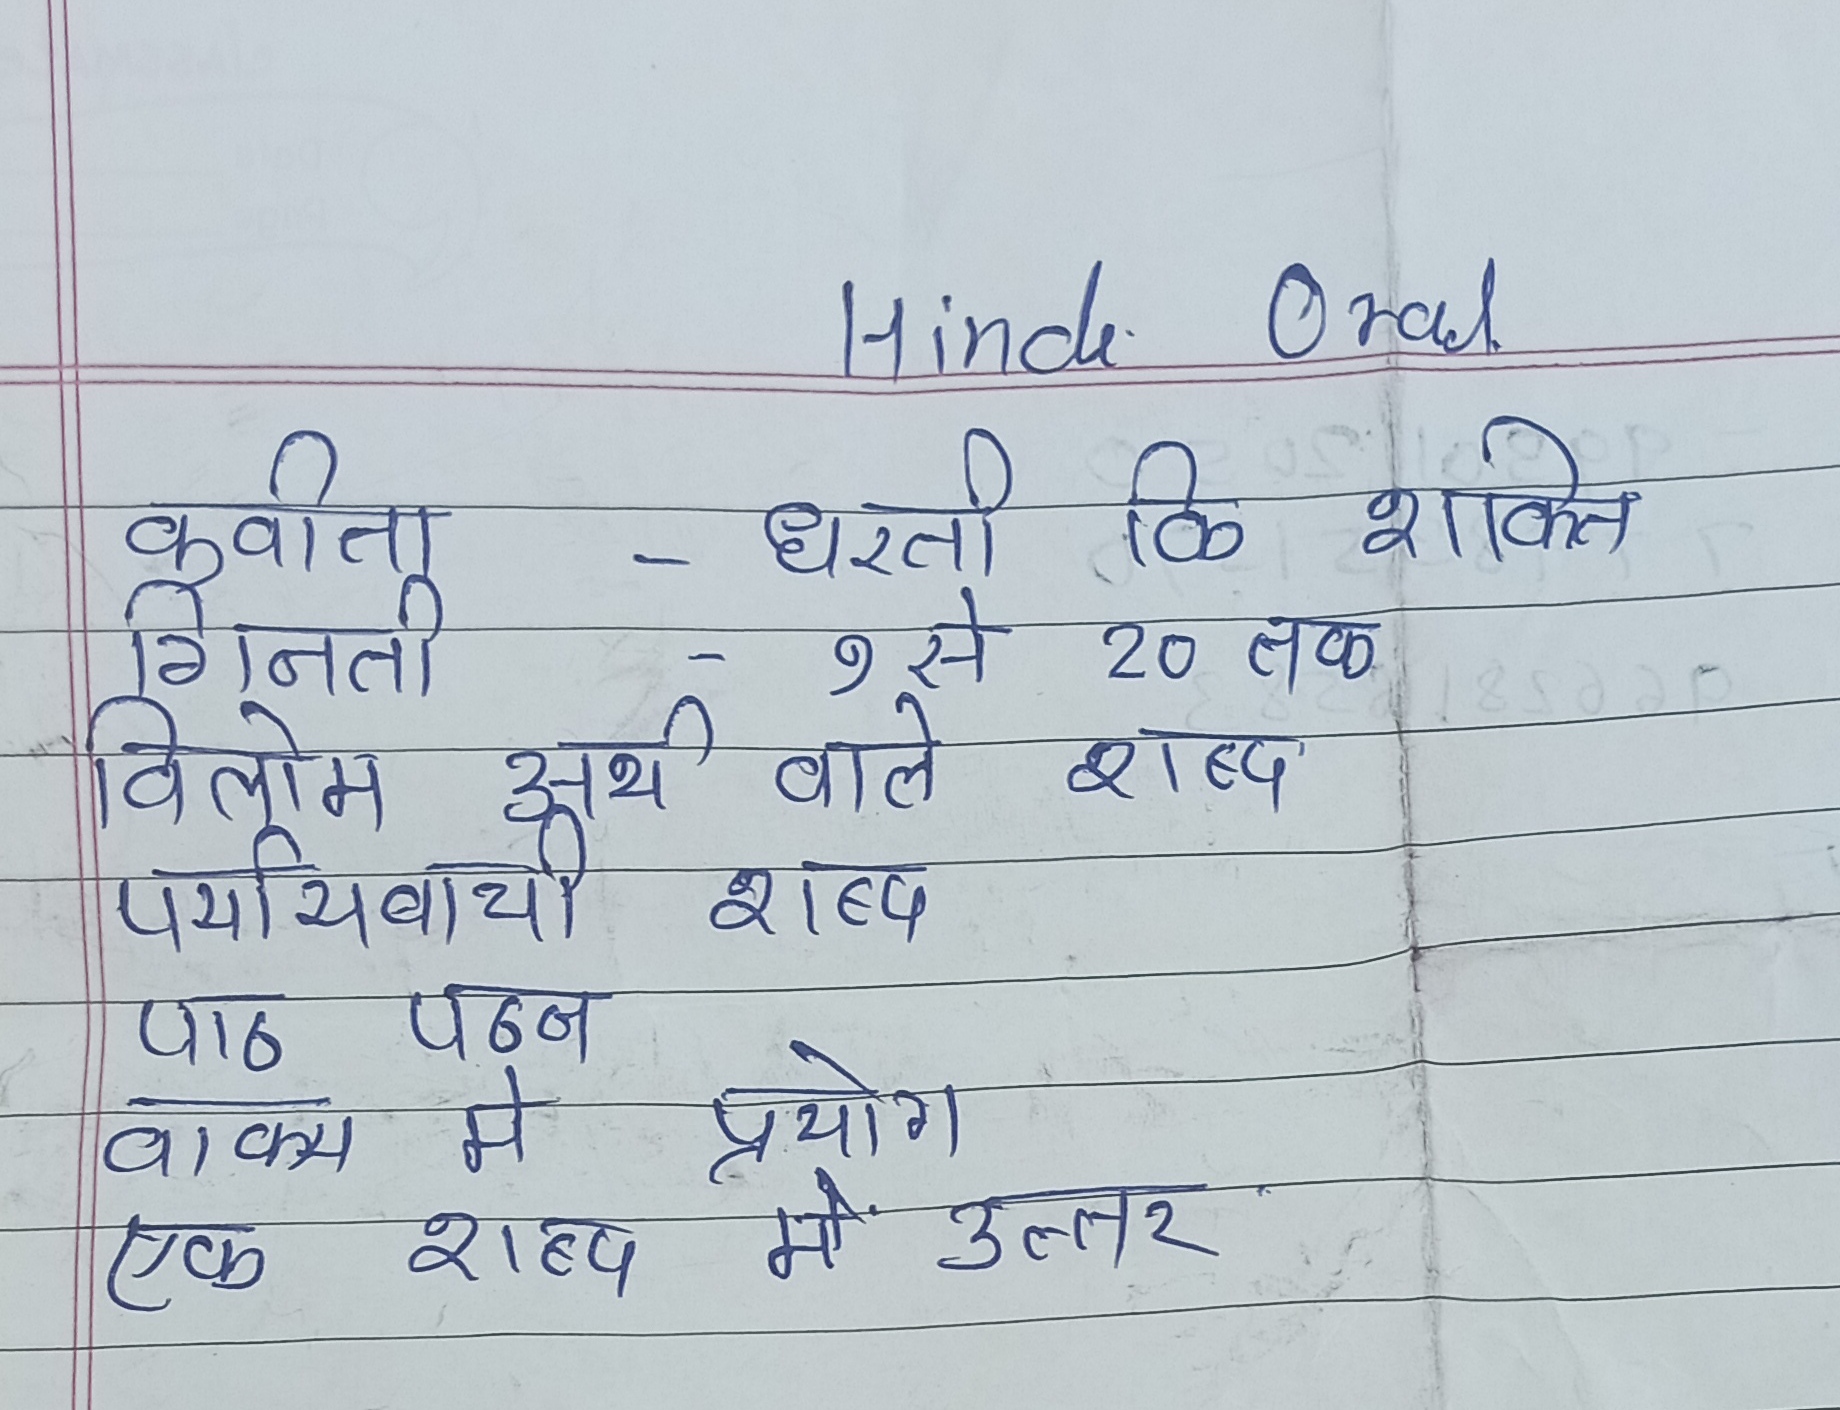 Hindi Oral
कवीता - धरती कि शक्ति
गिनती - १ से 20 तक
विलोम अर्थ वाले शब्द
पर्यायवाची शब्द
पाठ पठन
वाक्य मे प्रयोग
एक शब्द में उत्तर